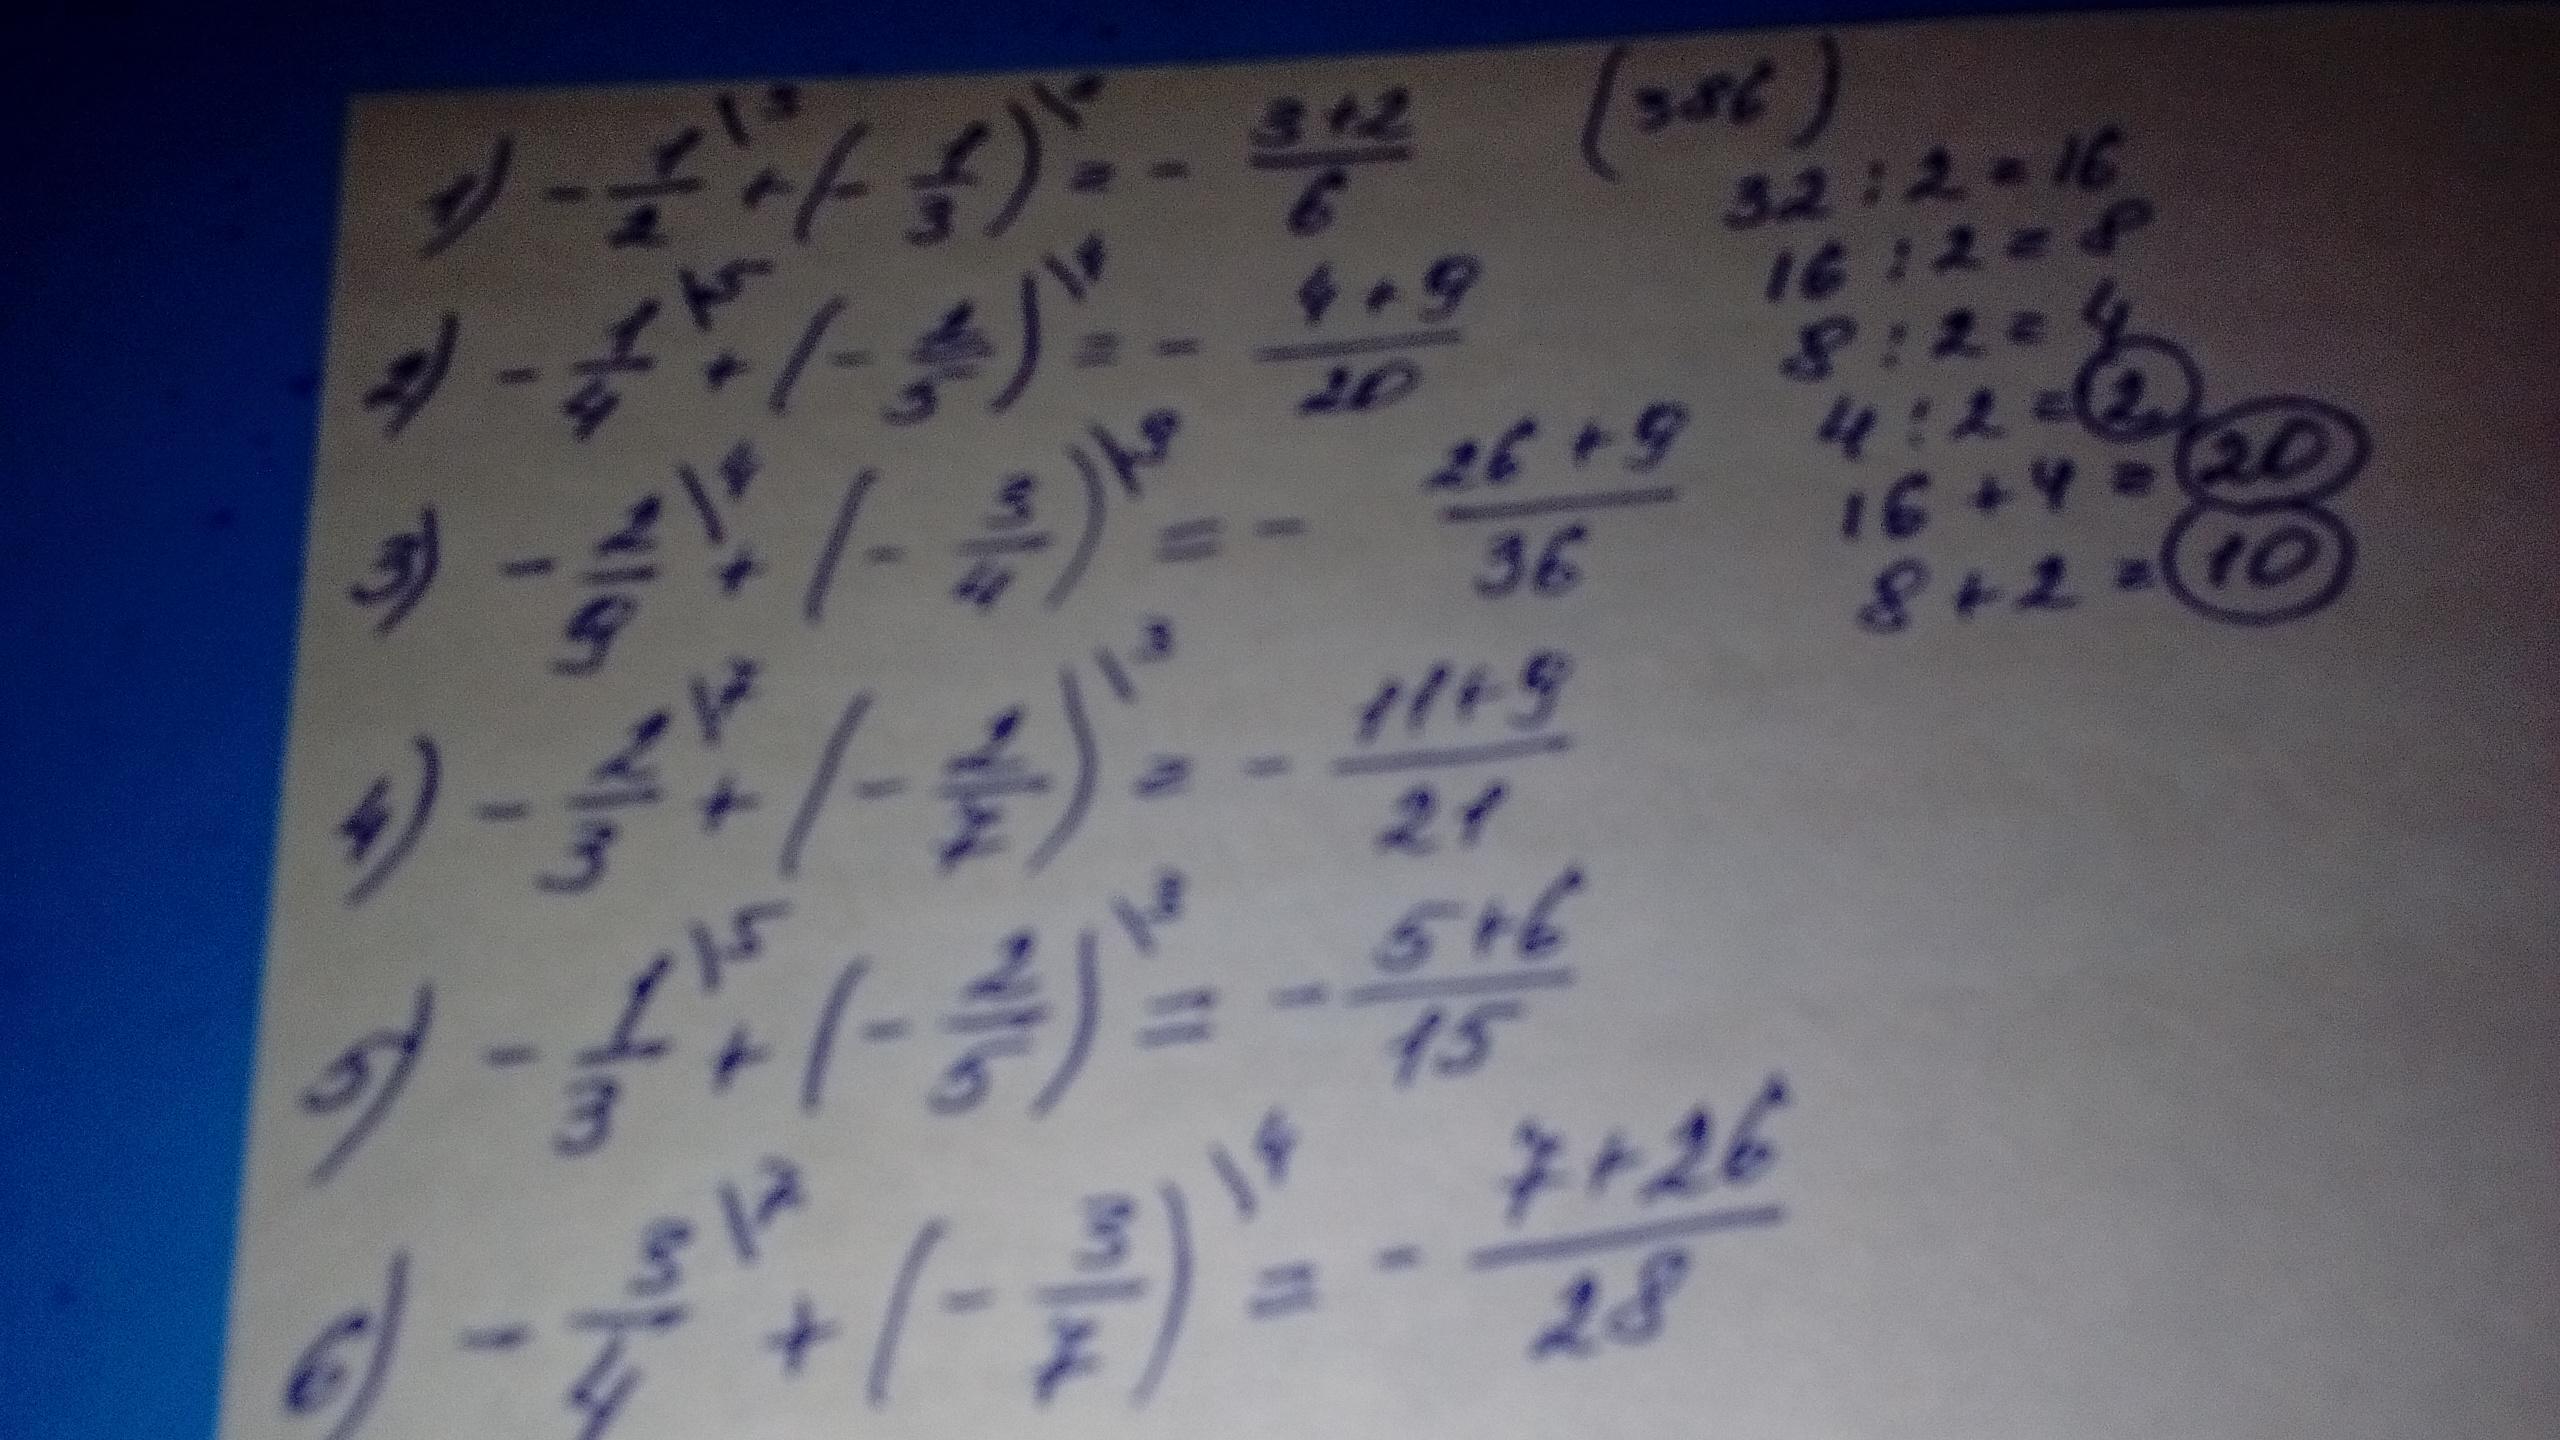 1) -1/2\3 + (-1/3)\2 = - 3+2/6
2) -1/4\5 + (-1/5)\4 = - 4+9/20
3) -2/9\4 + (-3/4)\9 = - 26+9/36
4) -2/3\7 + (-2/7)\3 = - 11+9/21
5) -1/3\5 + (-2/5)\3 = - 5+6/15
6) -3/4\7 + (-3/7)\4 = - 7+26/28
(386)
32 : 2 = 16
16 : 2 = 8
8 : 2 = 4
4 : 2 = 2
16 + 4 = 20
8 + 2 = 10